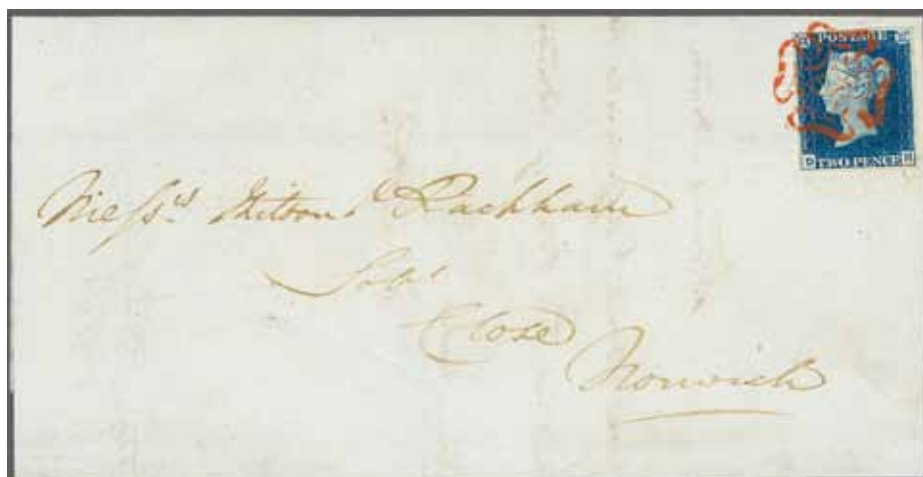 POSTAGE
D H
TWO PENCE
Mess.rs Kitson & Rackham
Sol.rs
Close
Norwich